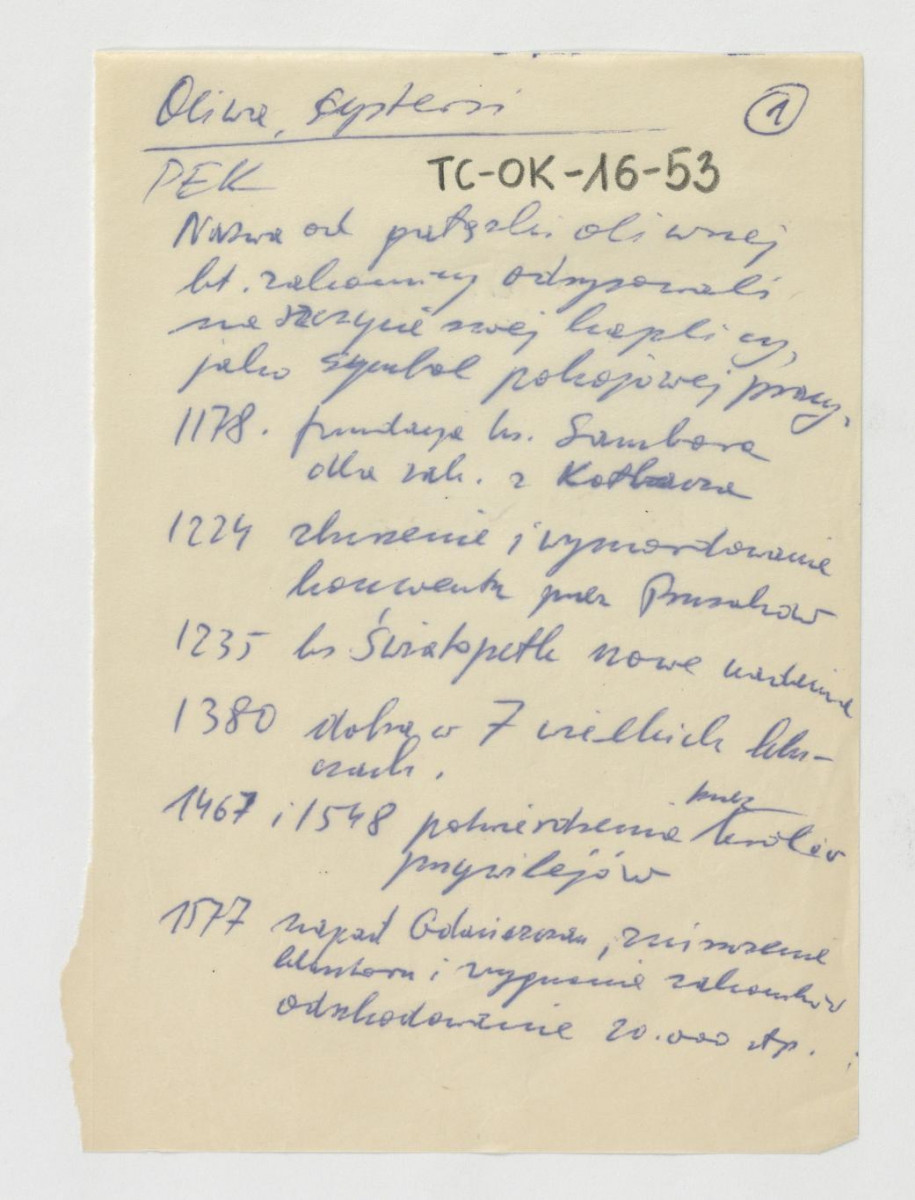 Oliwa, Cystersi
1
PEK
TC-OK-16-53
Nazwa od gałązki oliwnej
kt. zakonnicy odrysowali
na szczycie swej kaplicy,
jako symbol pokojowej pracy.
1178. fundacja ks. Sambora
dla zak. z Kołbacza
1224 zburzenie i wymordowanie
konwentu przez Prusaków
1235 ks Świętopełk nowe nadania
1380 dobra w 7 wielkich klu-
czach.
1467 i 1548 potwierdzenia przez królów
przywilejów
1577 napad Gdańszczan, zniszczenie
klasztoru i wygnanie zakonników
odszkodowanie 20.000 złp.